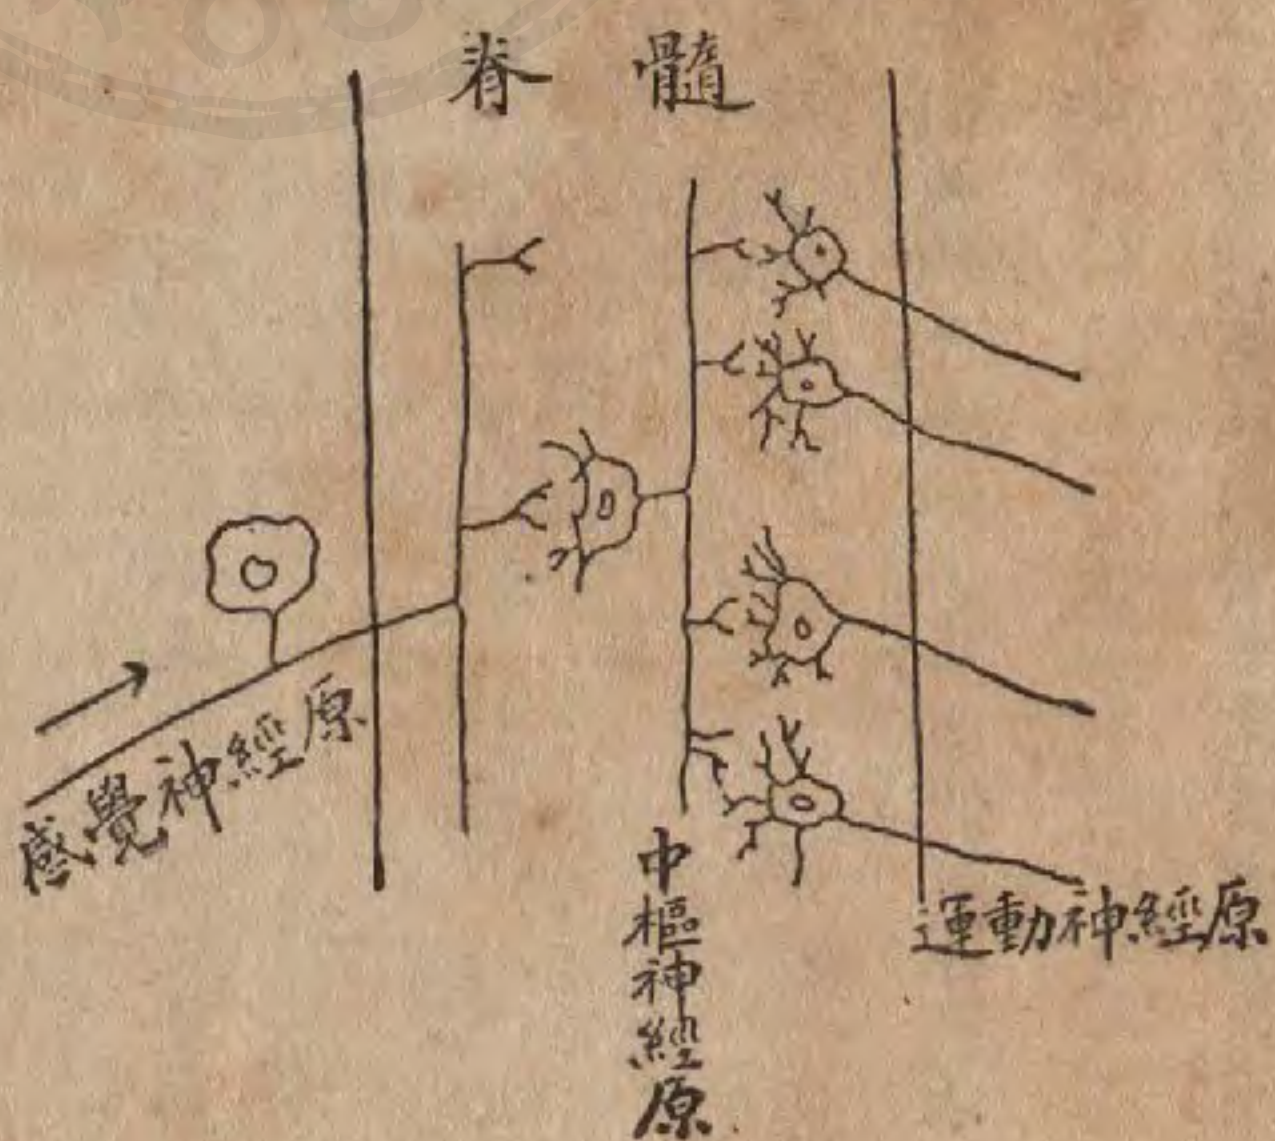 脊髓
感覺神經原
中樞神經原
運動神經原